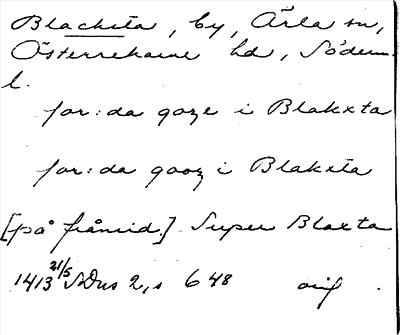 Blacksta, by, Ärla sn,
Österrekarne hd, Söderm.
l.
for:da goze i Blakxta
for:da gooz i Blakxta
[på frånsid.] Super Blaxta
1413 21/5 SDns 2, s 648 orig.